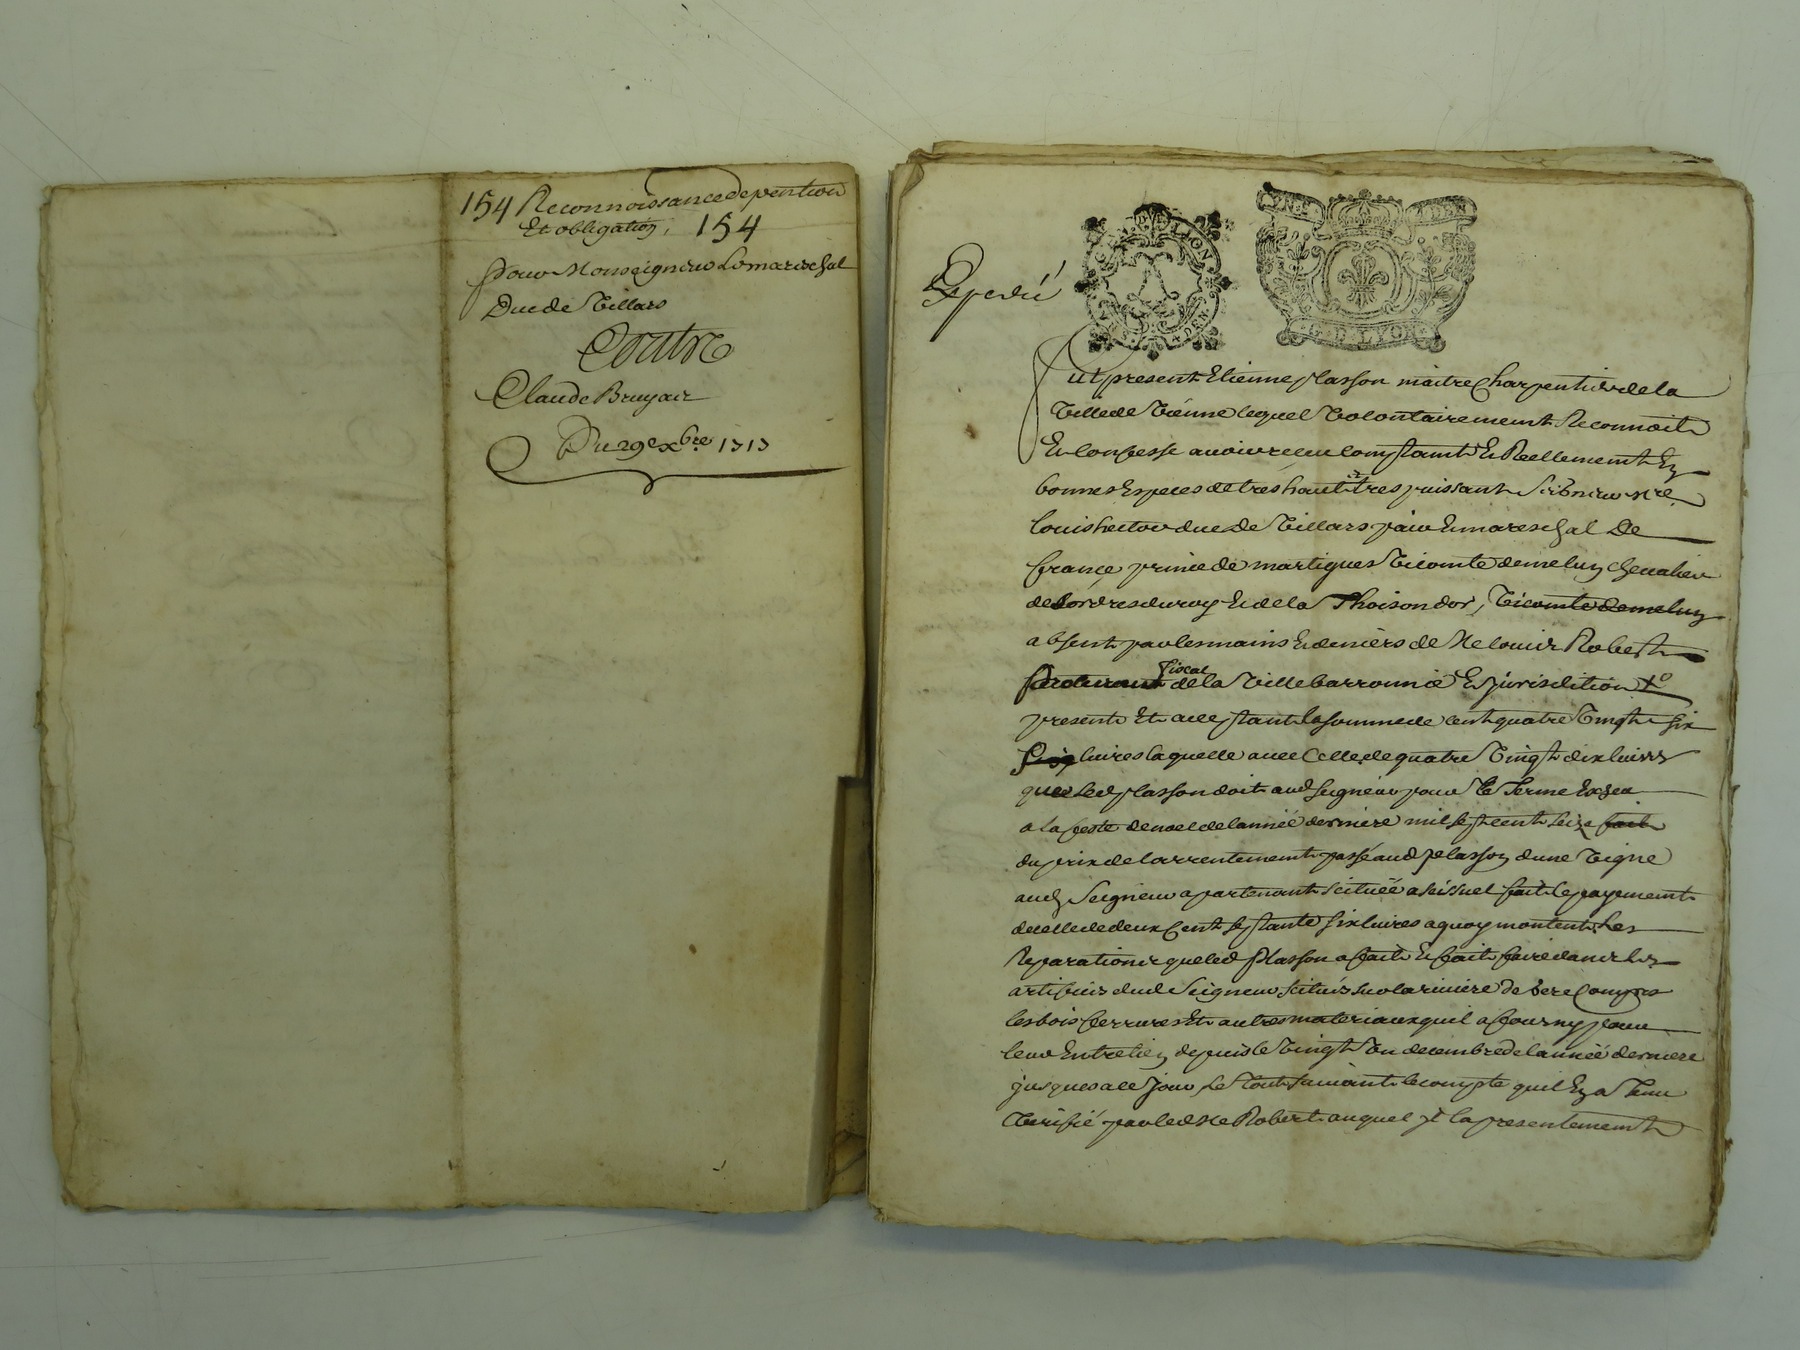 154 Reconnoissance de pention
Et obligation, 154
pour Monseigneur Le mareschal
Duc de Villars
Contre
Claude Bruyair
Du 29e xbre 1717
Expedié
GD LION
Fut present Etienne plasson maitre Charpentier de la
Ville de Vienne lequel Volontairement Reconnoit
Et Confesse avoir receu Comptamt Et Reellement En
bonnes Especes de tres haut et tres puissant Seigneur mre
louis hector duc De Villars pair Et mareschal De
france prince de martigues Vicomte de melun chevalier
des ordres du roy Et de la Thoison dor, Vicomte de melun
absent par les mains Et deniers de Me louis Robert
procureur fiscal de la Ville barronnie Et jurisdition
present Et acceptant la somme de cent quatre Vingt six
livres laquelle avec Celle de quatre Vingt dix livres
que led plasson doit aud seigneur pour le Terme Escheu
a la feste de noel de lannée derniere mil sept cent seize fait
du prix de larrentement passé aud plasson dune Vigne
aud Seigneur apartenant scituée a seissuel fait le payement
de celle de deux Cent septante six livres a quoy montent Les
Reparations que led plasson a fait Et fait faire dans les
artifices dud Seigneur scitués sur la riviere de Gere Compris
les bois ferrures Et autres materiaux quil a fourny pour
leur Entretien depuis le Vingt Un decembre de lannée derniere
jusques a ce jour, Le Tout suivant le compte quil En a Tenu
Verifié par led Me Robert auquel jl la presentement